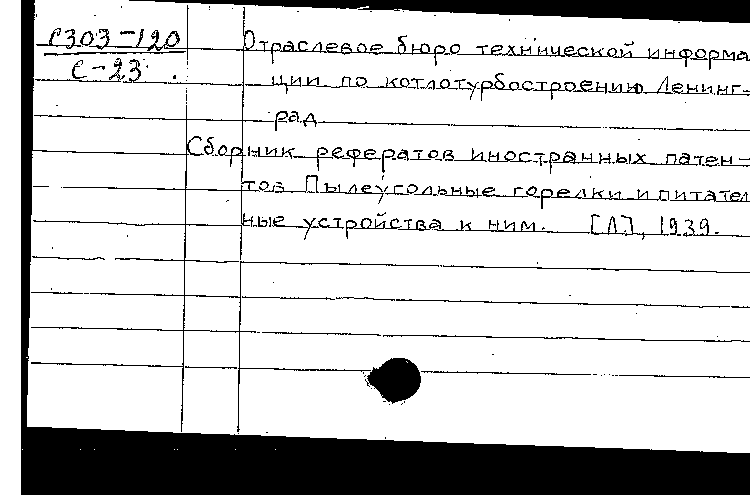 С303-120
С-23.
Отраслевое бюро технической информа
ции по котлотурбостроению Ленинг-
рад
Сборник рефератов иностранных патен-
тов Пылеугольные горелки и питател
ные устройства к ним. [Л], 1939.